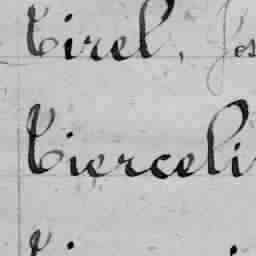 Tirel, Jos
Tierceli